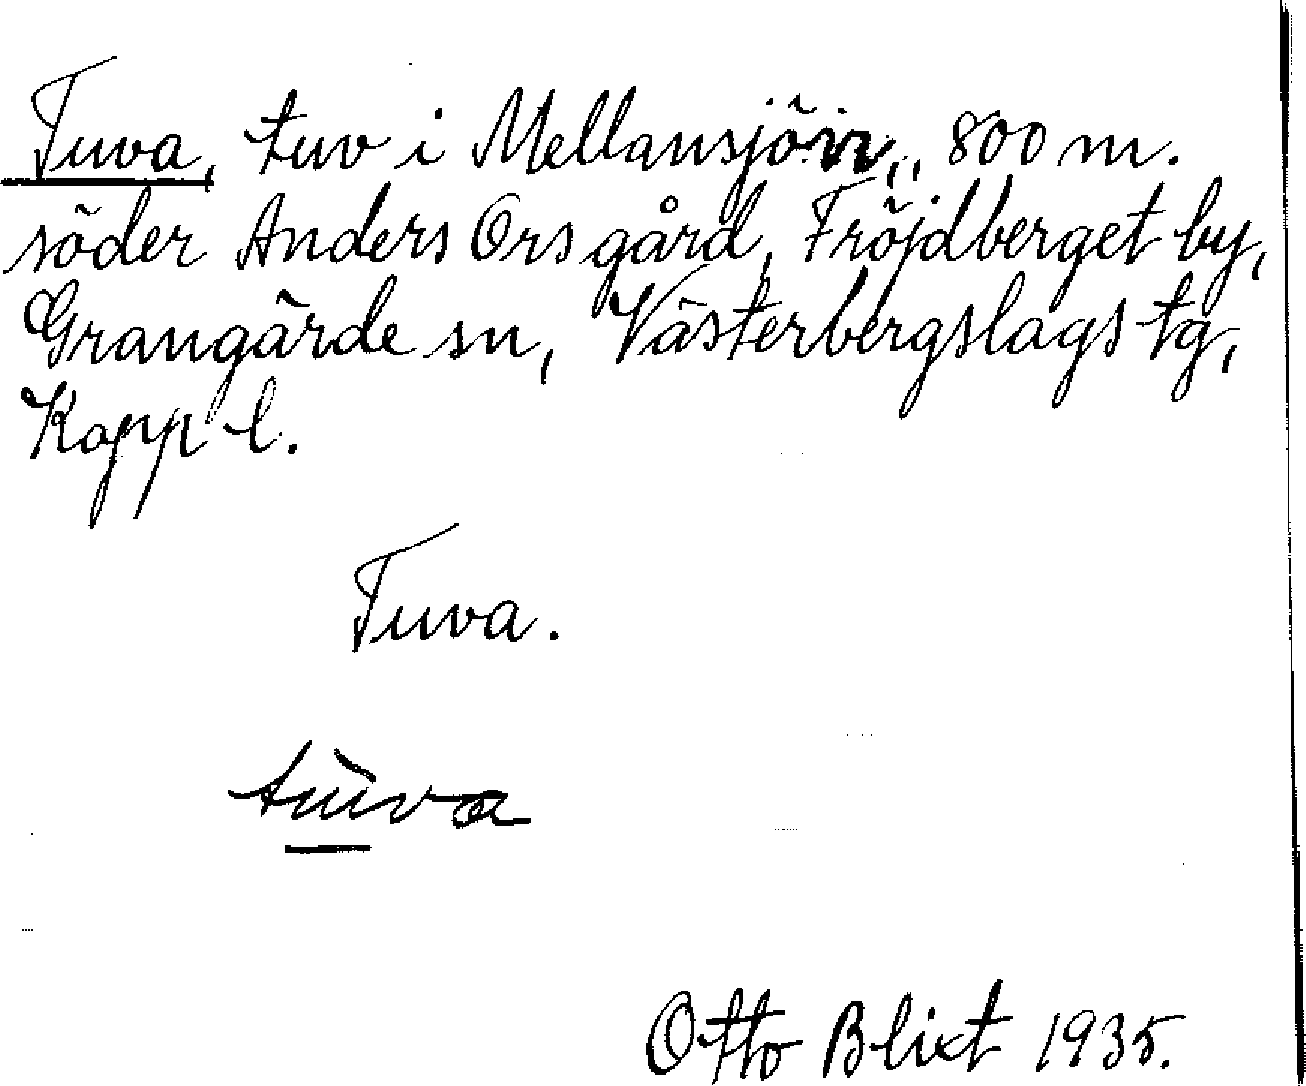 Tuva, tuv i Mellansjön, 800 m.
söder Anders Ors gård, Fröjdberget by,
Grangärde sn, Västerbergslags tg,
Kopp l.
Tuva.
tùva
Otto Blixt 1935.